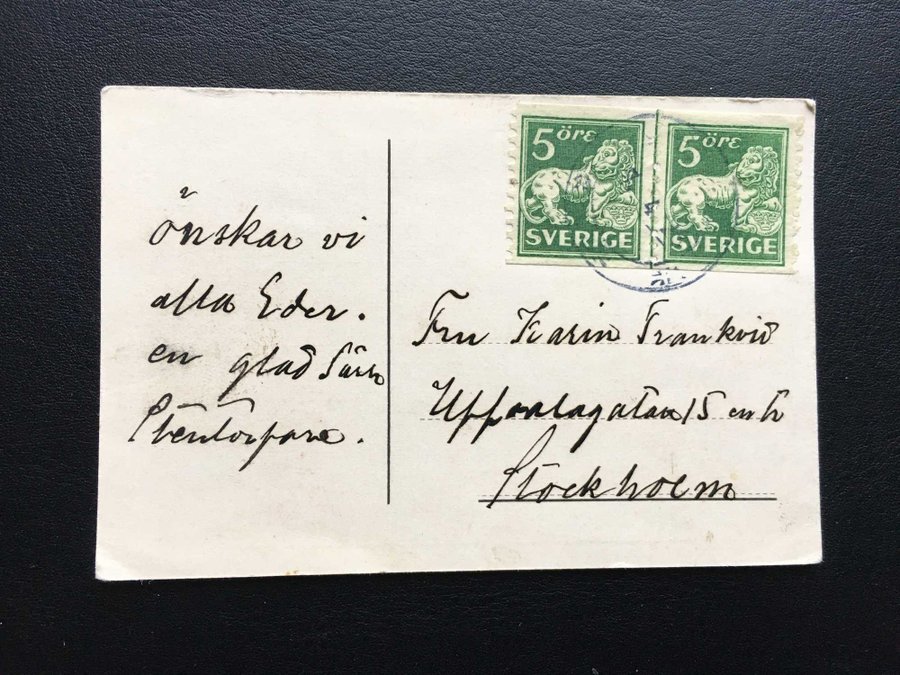 önskar vi
alla Eder.
en glad
Stentorpare.
5 öre
SVERIGE
5 öre
SVERIGE
Fru Karin Trankvid
Uppsalagatan 15 en tr
Stockholm